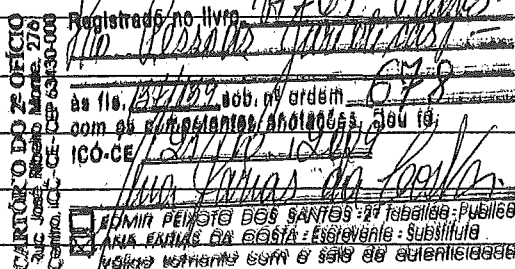 CARTÓRIO DO 2º OFÍCIO
Rua: José Ribeiro Monte, 276
Centro. ICÓ-CE - CEP 63430-000
Registrado no livro
Pessoas Jurídicas
às fls. 157/159 sob. nº ordem 678
com as competentes anotações. Dou fé.
ICÓ-CE
Ana Farias da Costa
EDMIR PEIXOTO DOS SANTOS - 2º Tabelião Público
ANA FARIAS DA COSTA - Escrevente - Substituta
Válido somente com o selo de autenticidade